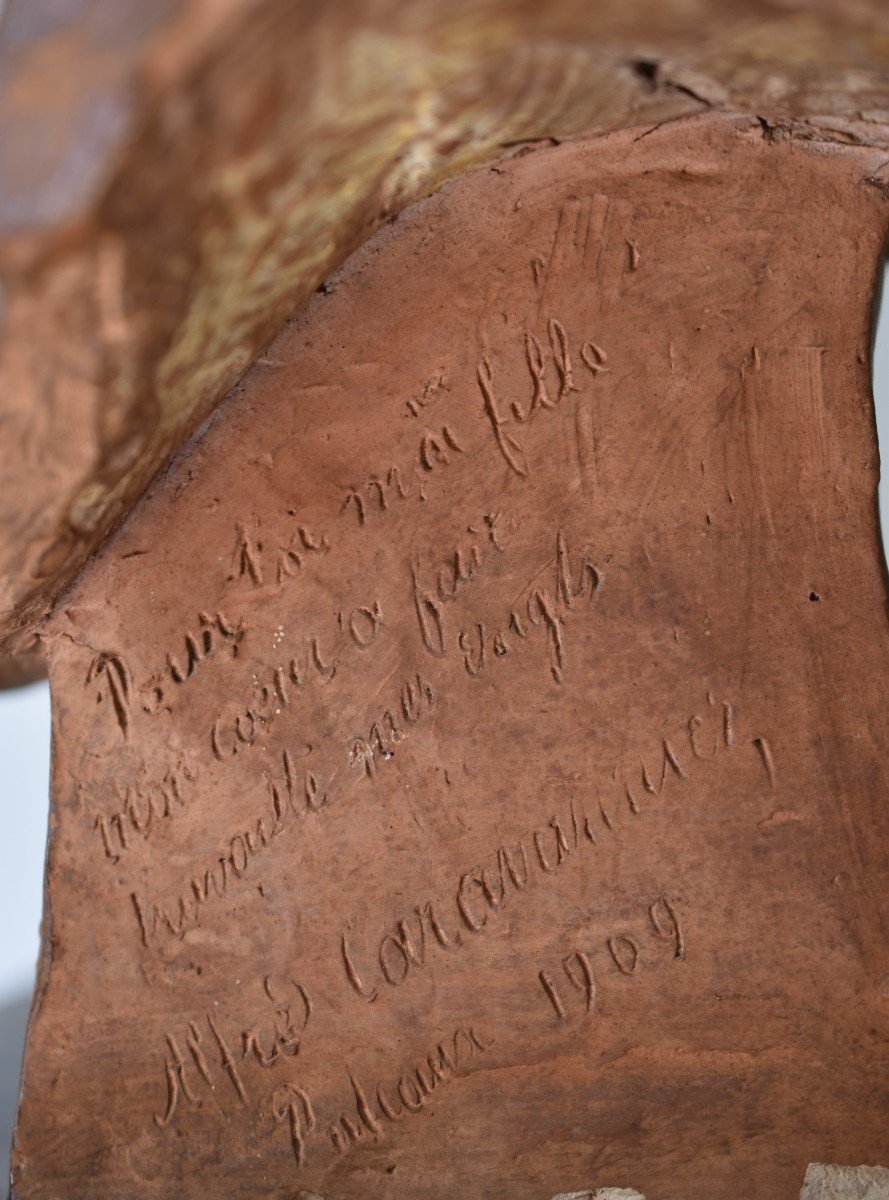 Pour toi ma fille
mon coeur a fait
travaillé mes doigts
Alfred Caravanniez,
Puteaux 1909